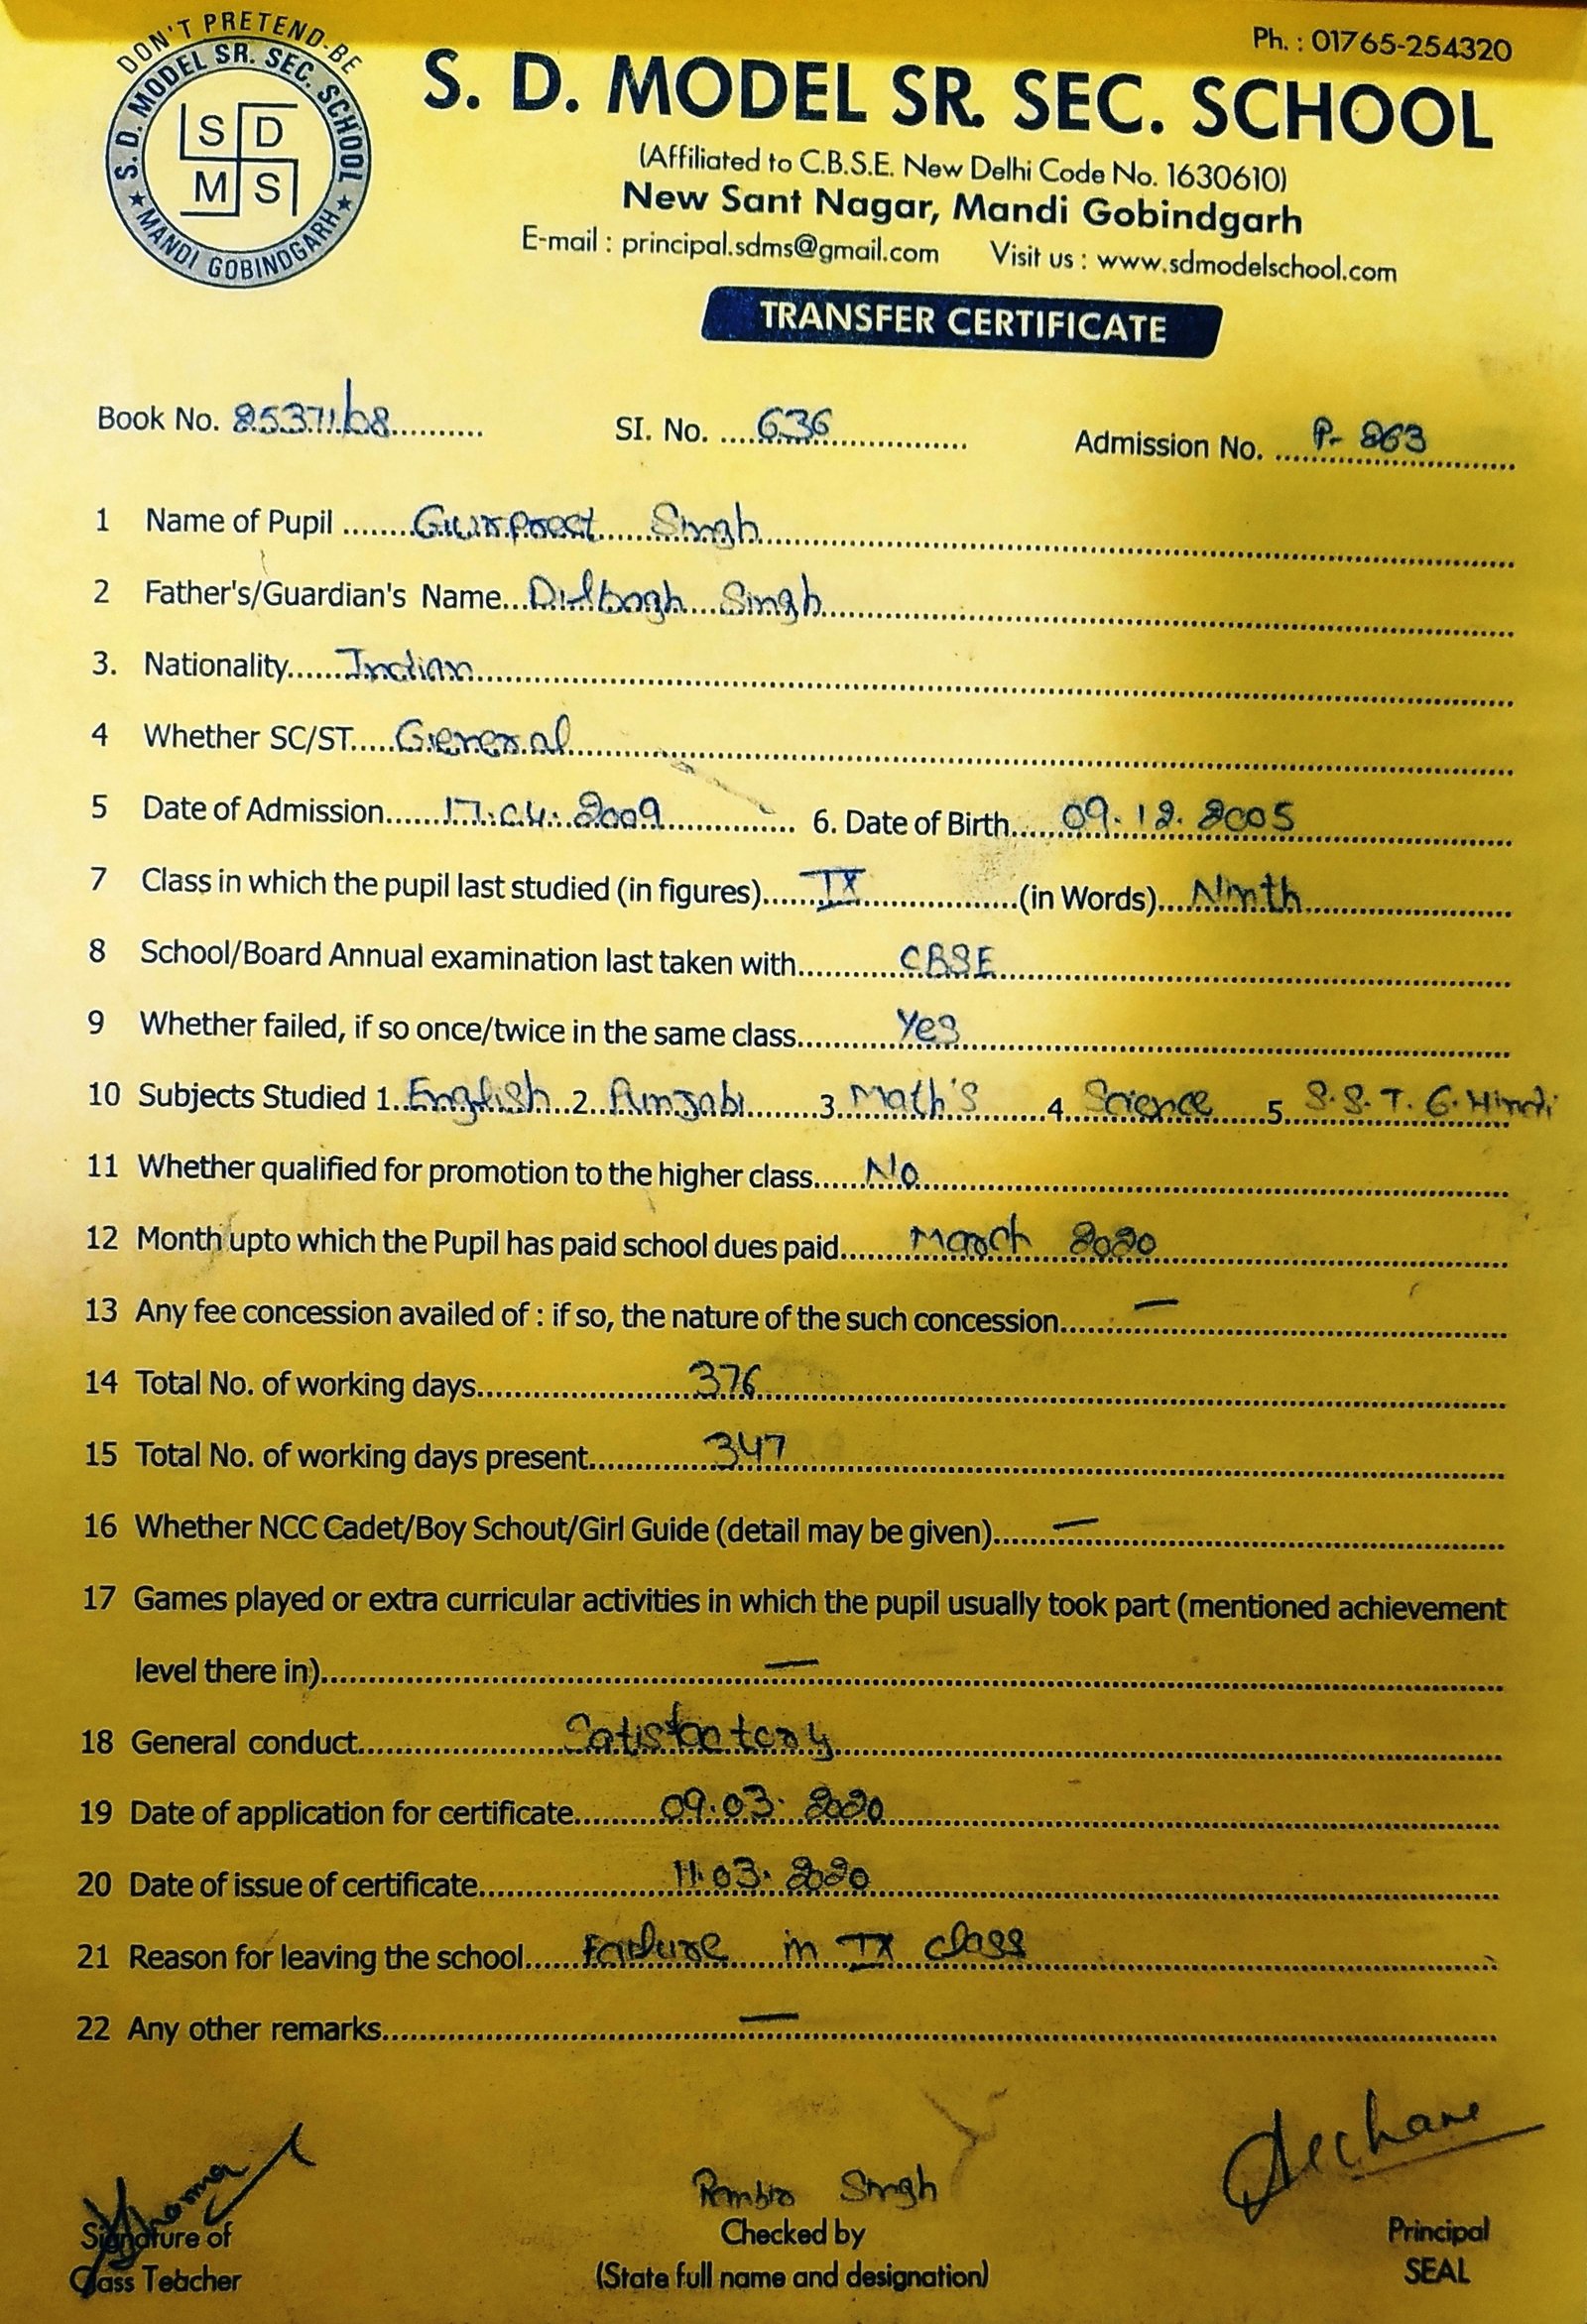 DON'T PRETEND-BE
S. D. MODEL SR. SEC. SCHOOL
★ MANDI GOBINDGARH ★
S D
M S
Ph. : 01765-254320
S. D. MODEL SR. SEC. SCHOOL
(Affiliated to C.B.S.E. New Delhi Code No. 1630610)
New Sant Nagar, Mandi Gobindgarh
E-mail : principal.sdms@gmail.com Visit us : www.sdmodelschool.com
TRANSFER CERTIFICATE
Book No. 25371/68 SI. No. 636 Admission No. P- 263
1 Name of Pupil Gurpreet Singh
2 Father's/Guardian's Name Dilbagh Singh
3. Nationality Indian
4 Whether SC/ST General
5 Date of Admission 17.04.2009 6. Date of Birth 09.12.2005
7 Class in which the pupil last studied (in figures) IX (in Words) Ninth
8 School/Board Annual examination last taken with CBSE
9 Whether failed, if so once/twice in the same class Yes
10 Subjects Studied 1. English 2. Punjabi 3. Math's 4. Science 5. S.S.T. 6. Hindi
11 Whether qualified for promotion to the higher class No
12 Month upto which the Pupil has paid school dues paid March 2020
13 Any fee concession availed of : if so, the nature of the such concession —
14 Total No. of working days 376
15 Total No. of working days present 347
16 Whether NCC Cadet/Boy Schout/Girl Guide (detail may be given) —
17 Games played or extra curricular activities in which the pupil usually took part (mentioned achievement
level there in) —
18 General conduct Satisfactory
19 Date of application for certificate 09.03.2020
20 Date of issue of certificate 11.03.2020
21 Reason for leaving the school Failure in IX class
22 Any other remarks —
Singh
Signature of Checked by Principal
Class Teacher (State full name and designation) SEAL